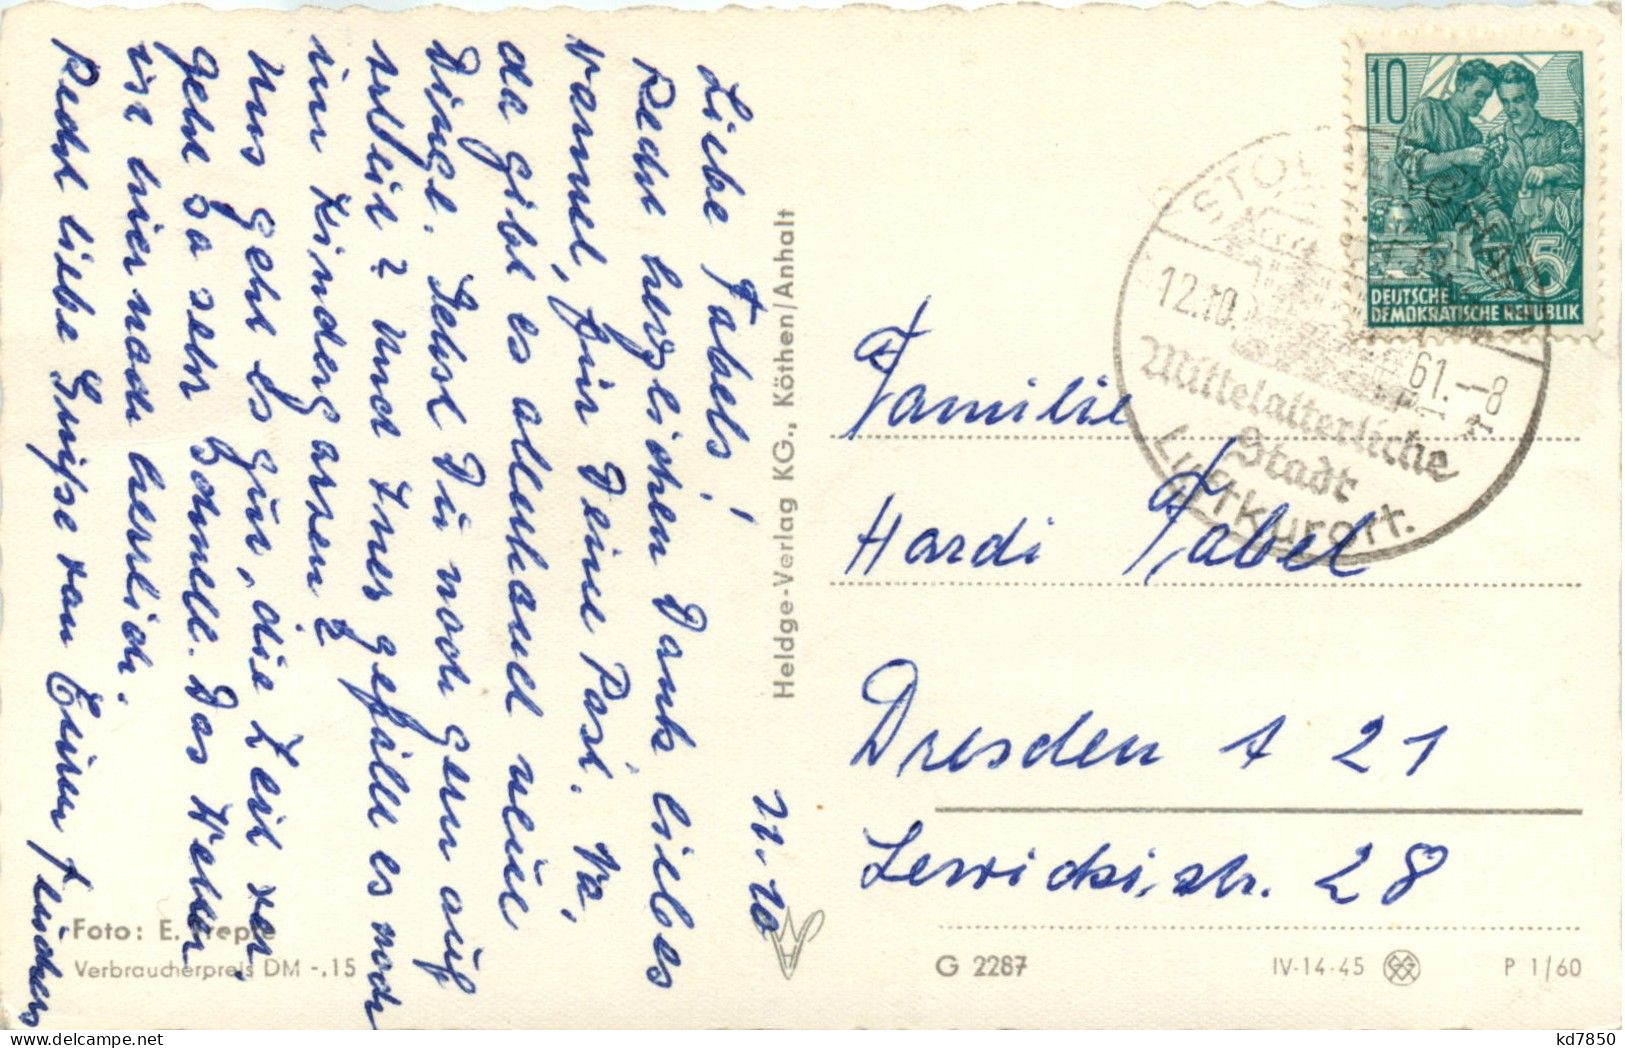 11.10
Liebe Fabels!
Recht herzlichen Dank liebes
, für Deine Post. Na,
da gibt es allerhand neue
Dinge. Gehst Du noch gern auf
arbeit? Und Ines gefällt es noch
im Kindergarten?
Uns geht es gut, die Zeit ver-
geht ja sehr schnell. Das Wetter
ist hier noch herrlich.
Recht liebe Grüße von Euren
Foto: E.
Verbraucherpreis DM -,15
Heldge-Verlag KG., Köthen/Anhalt
10
5
DEUTSCHE
DEMOKRATISCHE REPUBLIK
STOL
12.10.
61.-8
Mittelalterliche
Stadt
Luftkurort.
Familie
Hardi Fabel
Dresden A 21
Lewickistr. 28
G 2287
IV-14-45
P 1/60
kd7850